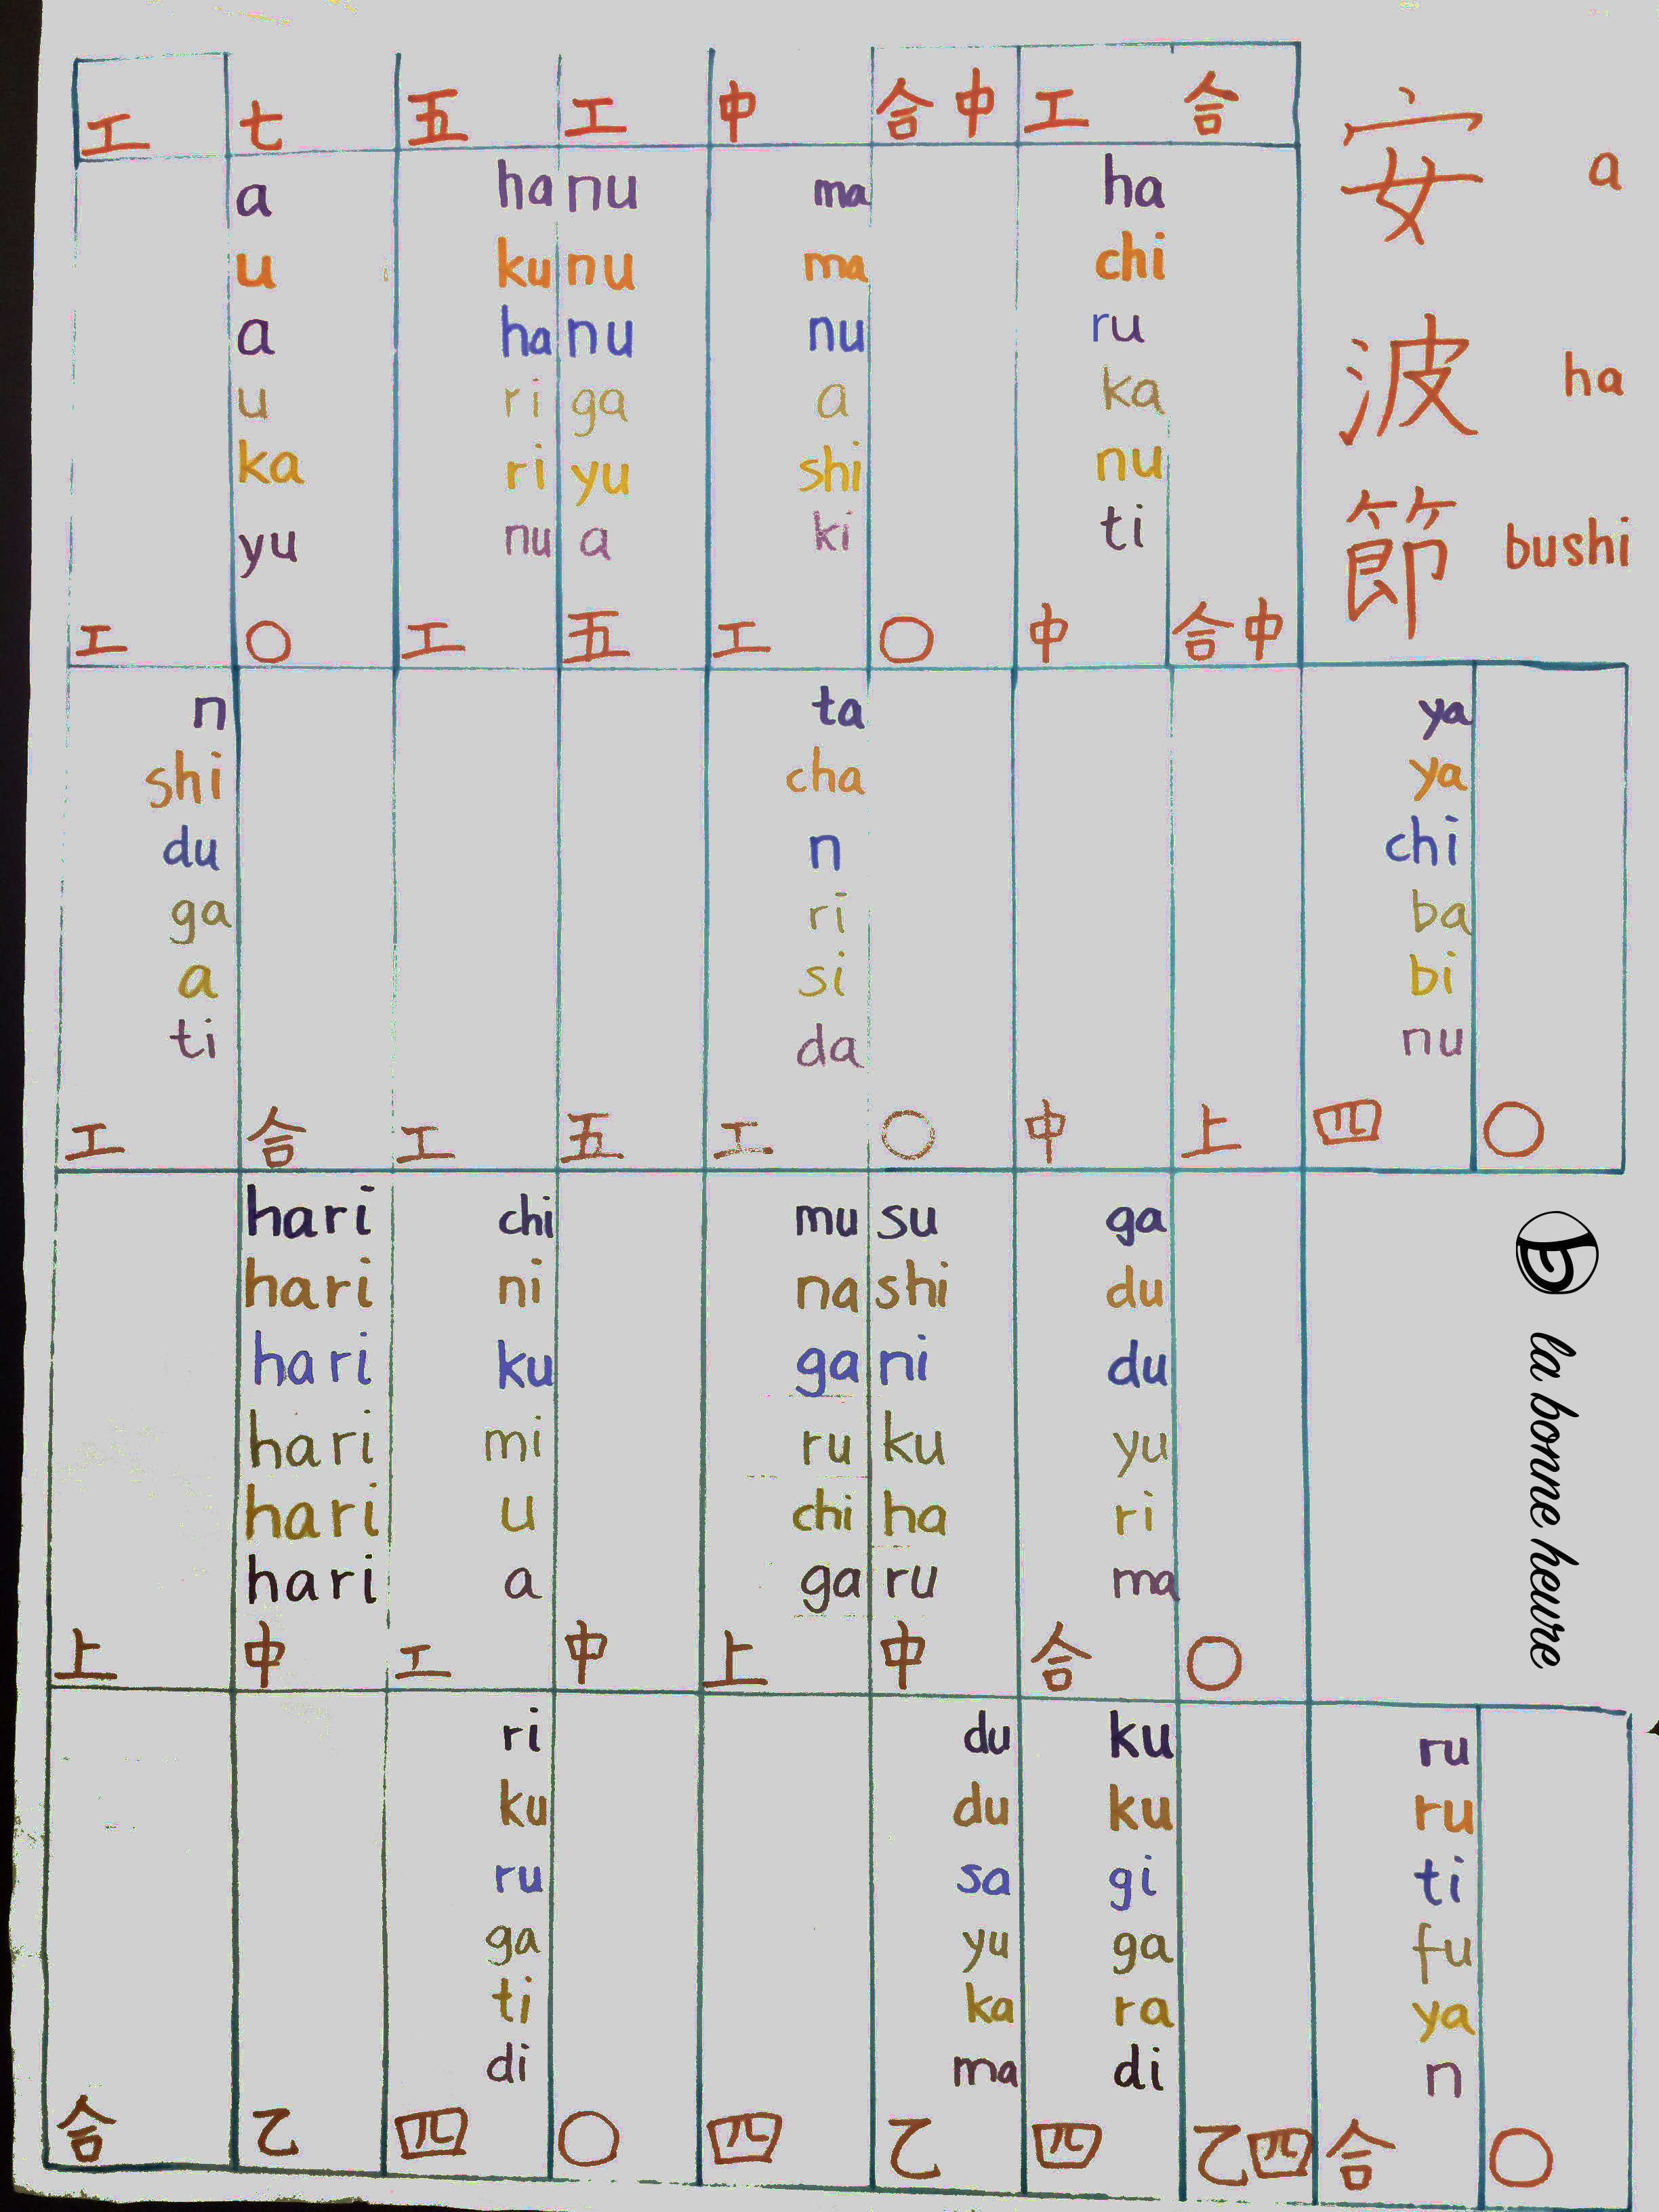 工 七 五 工 中 合 中 工 合
安 a
波 ha
節 bushi
a ha nu ma ha
u ku nu ma chi
a ha nu nu ru
u ri ga a ka
ka ri yu shi nu
yu nu a ki ti
工 〇 工 五 工 〇 中 合 中
n ta ya
shi cha ya
du n chi
ga ri ba
a si bi
ti da nu
工 合 工 五 工 〇 中 上 四 〇
hari chi mu su ga
hari ni na shi du
hari ku ga ni du
hari mi ru ku yu
hari u chi ha ri
hari a ga ru ma
上 中 工 中 上 中 合 〇
b la bonne heure
ri du ku ru
ku du ku ru
ru sa gi ti
ga yu ga fu
ti ka ra ya
di ma di n
合 乙 四 〇 四 乙 四 乙 四 合 〇